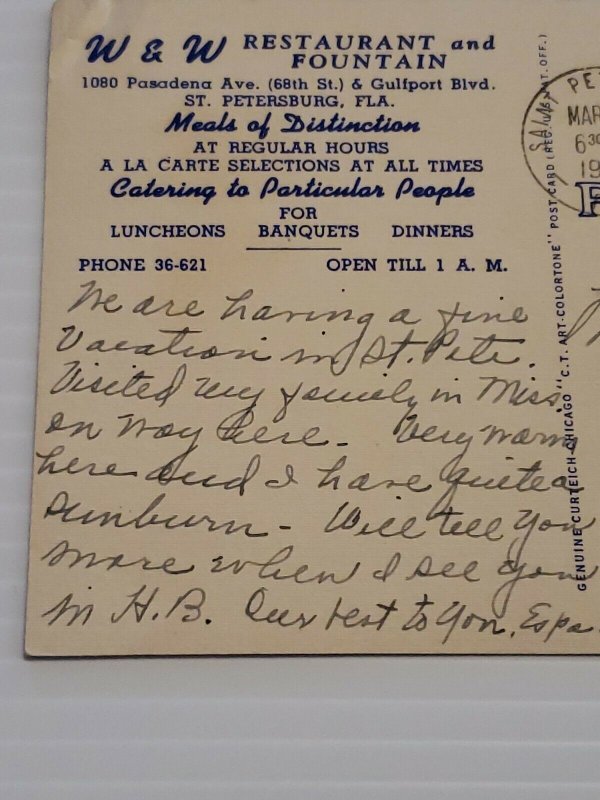 W & W RESTAURANT and
FOUNTAIN
1080 Pasadena Ave. (68th St.) & Gulfport Blvd.
ST. PETERSBURG, FLA.
Meals of Distinction
AT REGULAR HOURS
A LA CARTE SELECTIONS AT ALL TIMES
Catering to Particular People
FOR
LUNCHEONS BANQUETS DINNERS
PHONE 36-621 OPEN TILL 1 A. M.
We are having a fine
vacation in St. Pete.
Visited my family in Miss.
on way here - Very warm
here and I have quite a
sunburn - Will tell you
more when I see you
in H.B. Our best to you, Espa
GENUINE CURTEICH-CHICAGO "C.T. ART-COLORTONE" POST CARD (REG. U.S. PAT. OFF.)
SAINT PE
MAR
6 30
19